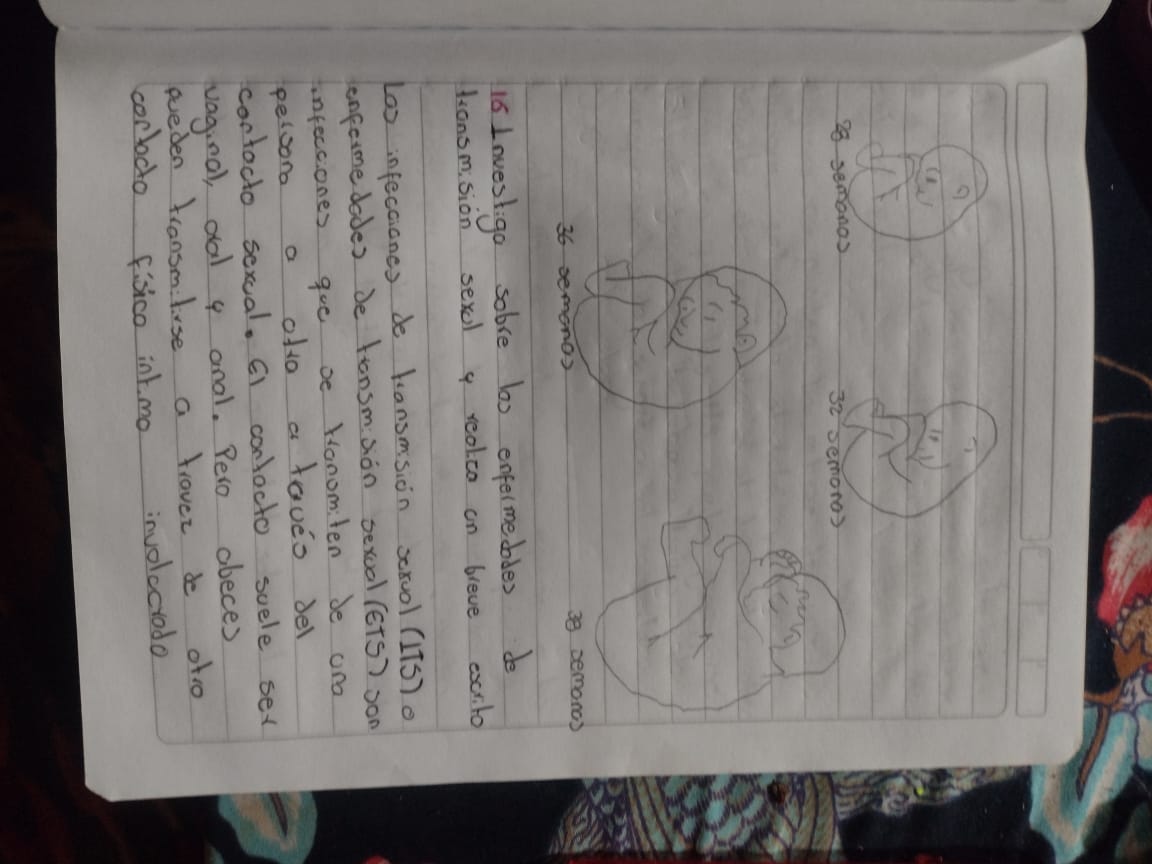 28 semanas
32 semanas
36 semanas
38 semanas
16 Investigo sobre las enfermedades de
transmisión sexol y realica un breve escrito
Las infecciones de transmisión sexual (ITS) o
enfermedades de transmisión sexual (ETS) son
infecciones que se transmiten de una
persona a otra a tavés del
contacto sexual. El contacto suele ser
vaginal, oal y anal. Pero abeces
pueden transmitirse a travez de otro
contacto físico intimo involucrado